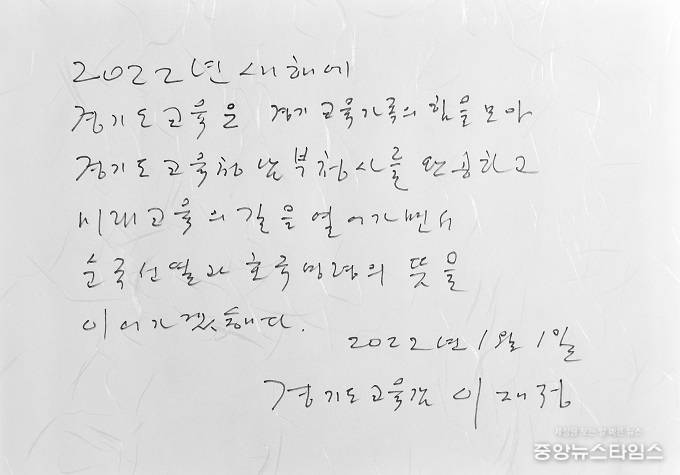 2022년 새해에
경기도교육은 경기교육가족의 힘을 모아
경기도교육청 남부청사를 완공하고
미래교육의 길을 열어가면서
순국선열과 호국영령의 뜻을
이어가겠습니다.
2022년 1월 1일
경기도교육감 이재정
중앙뉴스타임스